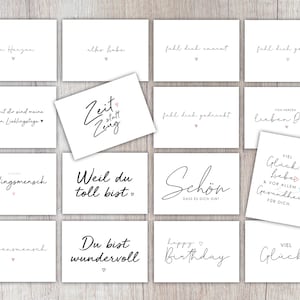 von Herzen
alles liebe
fühl dich umarmt
fühl dich ge
mit dir sind meine
Lieblingstage
Zeit
statt
Zeug
fühl dich gedrückt
VON HERZEN
lieben D
lingsmensch
Weil du
toll bist
Schön
DASS ES DICH GIBT
VIEL
Glück
liebe
& VOR ALLEM
Gesundheit
FÜR DICH
Du bist
wundervoll
happy
Birthday
VIEL
Glück